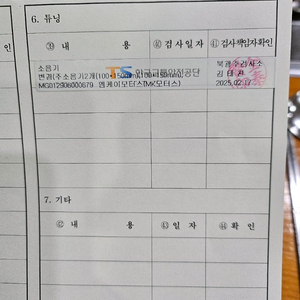 6. 튜닝
㊴ 내 용 ㊵ 검사일자 ㊶ 검사책임자확인
소음기
변경(주소음기2개(100*150mm,100*150mm)
MG012908000679 엠케이모터스(MK모터스)
TS 한국교통안전공단
북광주검사소
2025.02.17
7. 기타
㊷ 내 용 ㊸ 일자 ㊹ 확인